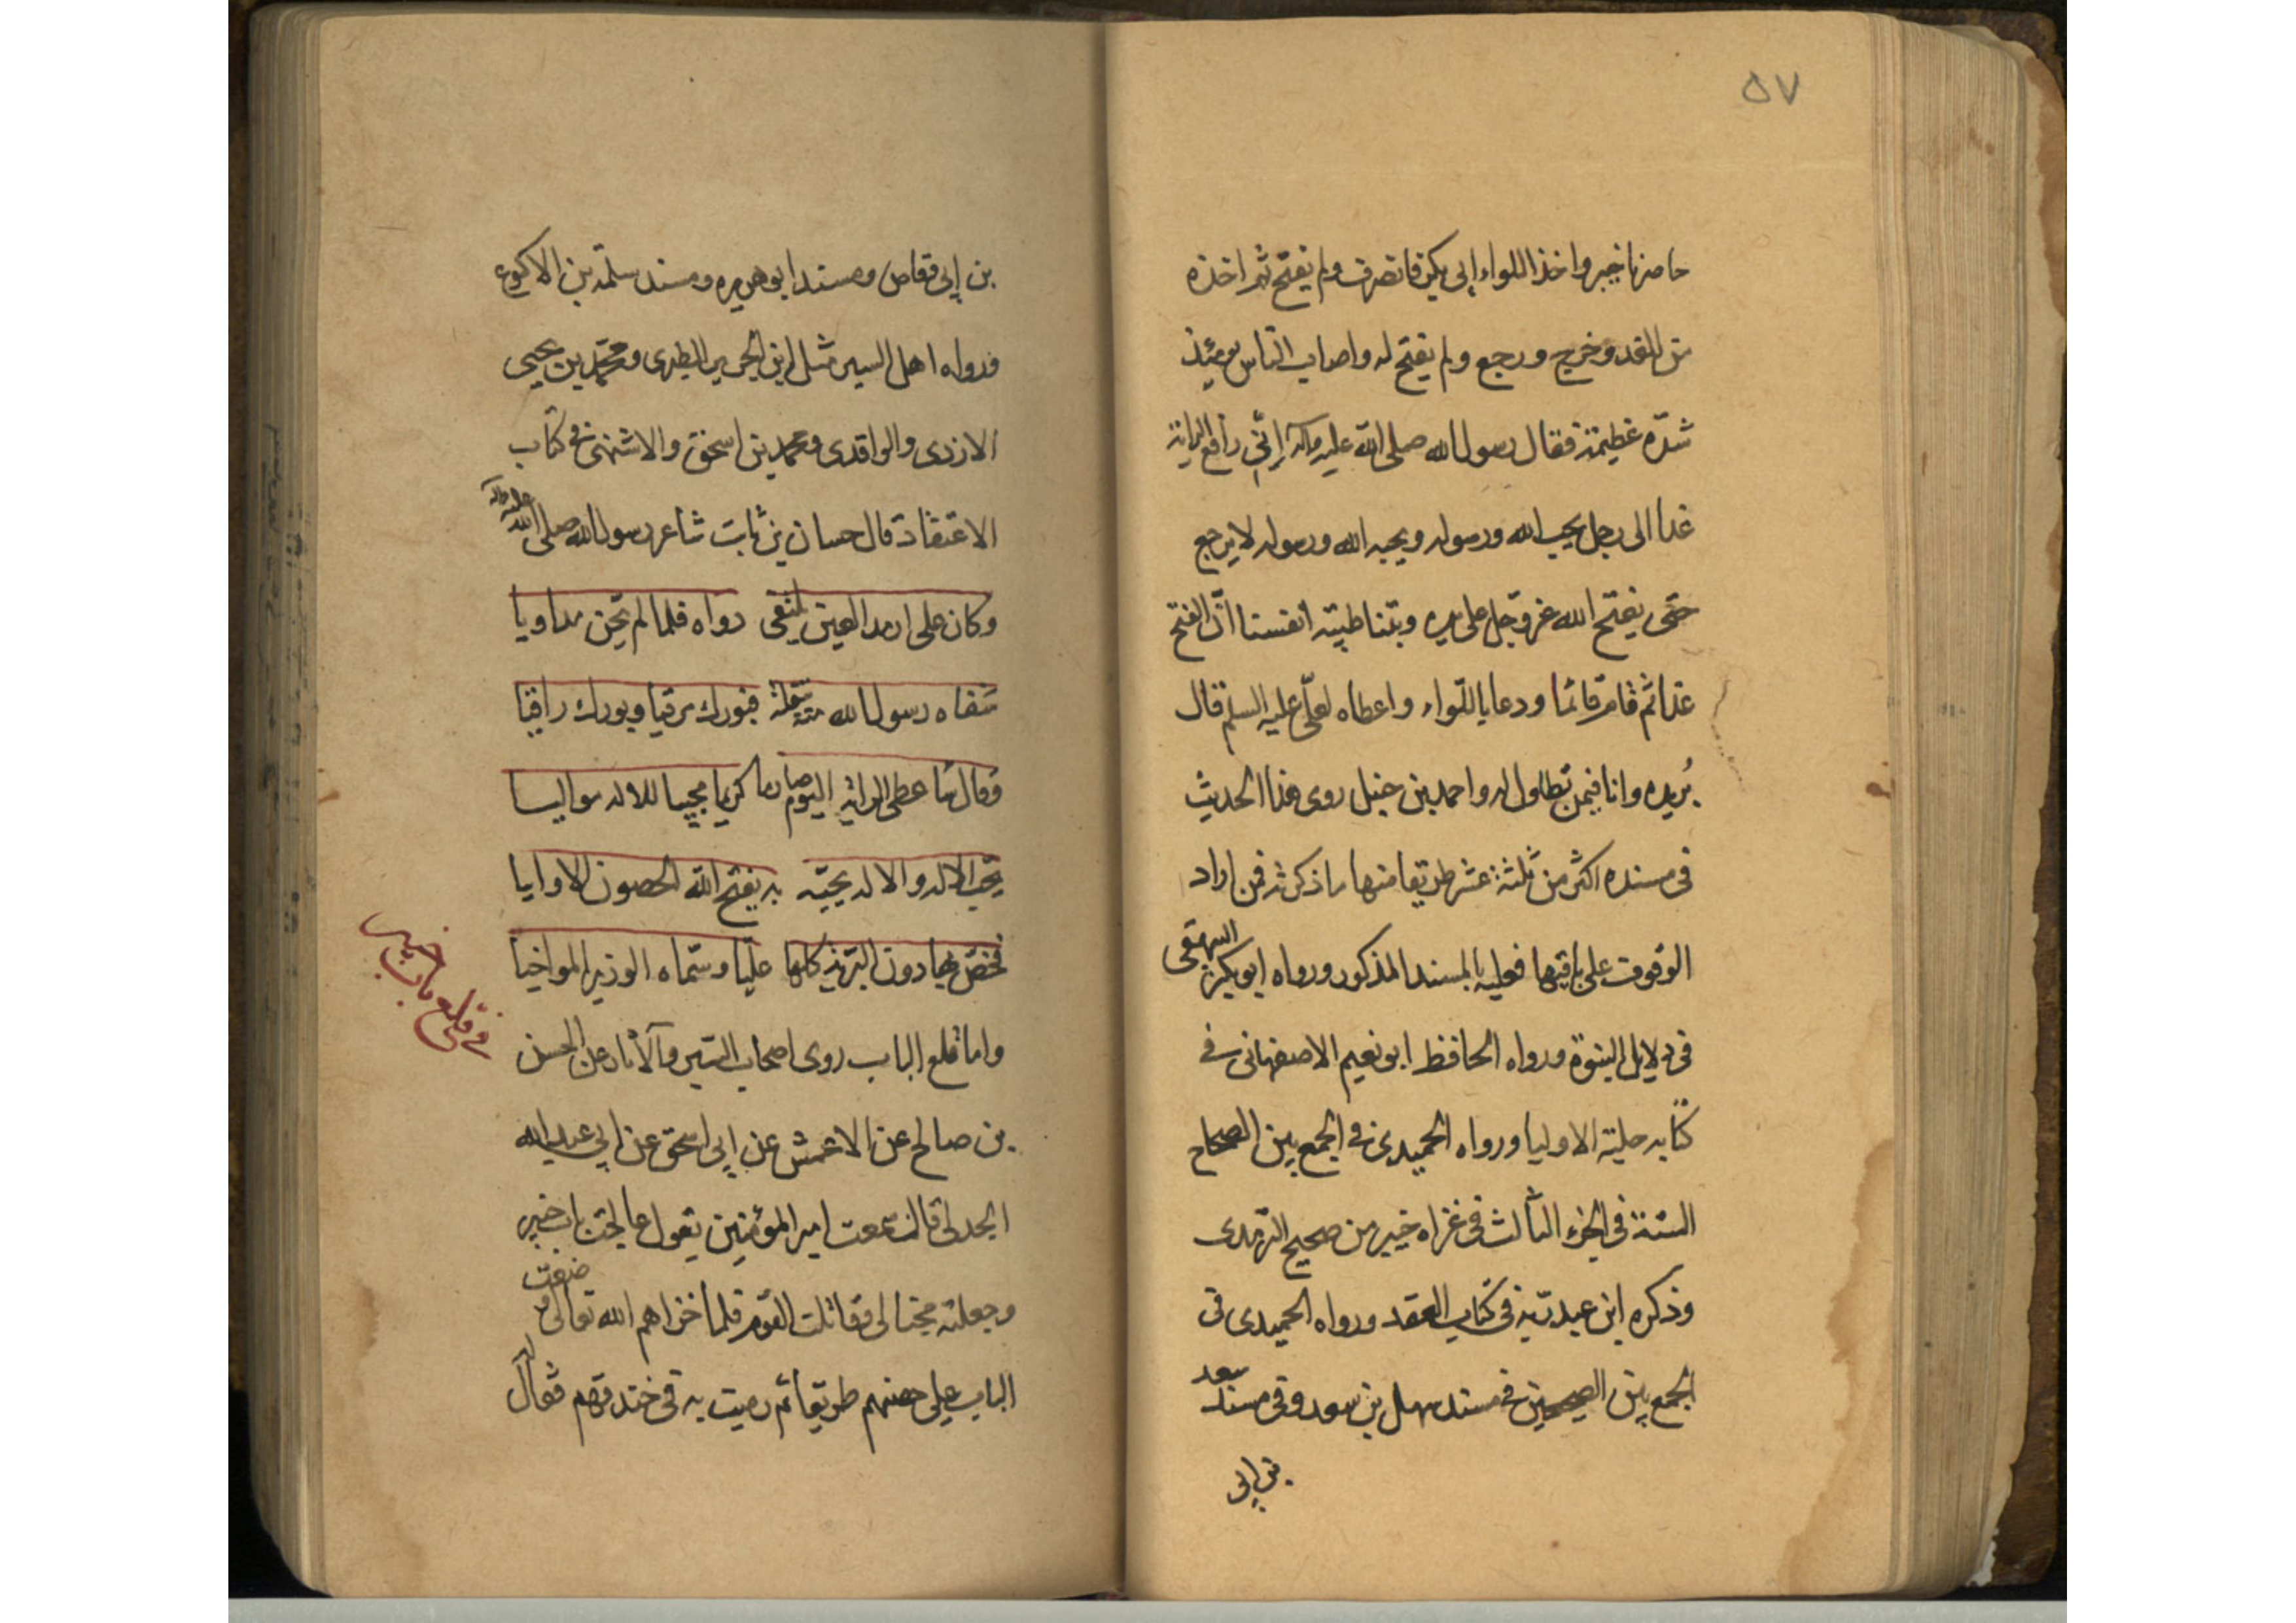 ٥٧
حاصرنا خيبر واخذ اللواء ابي بكر فانصرف ولم يفتح ثم اخذه
من الغد وخرج ورجع ولم يفتح له واصاب الناس يومئذ
شدّة عظيمة فقال رسول الله صلى الله عليه وآله إنّي رافع الراية
غدا الى رجل يحب الله ورسوله ويحبه الله ورسوله لا يرجع
حتى يفتح الله عز وجل على يده وبتنا طيبة انفسنا انّ الفتح
غدا ثم قام قائما ودعا باللواء واعطاه لعليّ عليه السلم قال
بُريده وانا فيمن تطاول له واحمد بن حنبل روى هذا الحديث
فى مسنده اكثر من ثلثة عشر طريقا منها ما ذكرته فمن اراد
الوقوف على باقيها فعليه بالمسند المذكور ورواه ابو بكر البيهقى
فى دلايل النبوة ورواه الحافظ ابو نعيم الاصفهانى فى
كتابه حلية الاوليا ورواه الحميدى فى الجمع بين الصحاح
الستة فى الجزء الثالث فى غزاه خيبر من صحيح الترمدى
وذكره ابن عبد ربه فى كتاب العقد ورواه الحميدى فى
الجمع بين الصحيحين فى مسند سهل بن سعد وفى مسند سعد
بن ابى
بن إبى وقاص ومسند ابو هريره ومسند سلمة بن الاكوع
ورواه اهل السير مثل ابن الجرير الطبرى ومحمّد بن يحيى
الازدى والواقدى ومحمد بن اسحق والاشنهى فى كتاب
الاعتقاد قال حسان بن ثابت شاعر رسول الله صلى الله عليه وآله
وكان على ارمد العين يبتغى دواه فلما لم يحن مداويا
شفاه رسول الله منه بتفلة فبورك مرقيا وبورك راقيا
وقال سا عطى الراية اليوم صارما كريما مجيبا للاله مواليا
يحب الاله والاله يحبّه به يفتح الله الحصون الاوابيا
فخصّ بها دون البرية كلها عليّا وسمّاه الوزير المواخيا
واما قلع الباب روى اصحاب السّير والآثار عن الحسن
فى قلع باب خيبر
بن صالح عن الاعمش عن إبى اسحق عن ابي عبد الله
الجدلى قال سمعت امير المؤمنين يقول عالجت باب خيبر
وجعلته مجنا لى فقاتلت القوم فلما اخزاهم الله تعالى وضعت
الباب على حصنهم طريقا ثم رميت به فى خندقهم فقال له